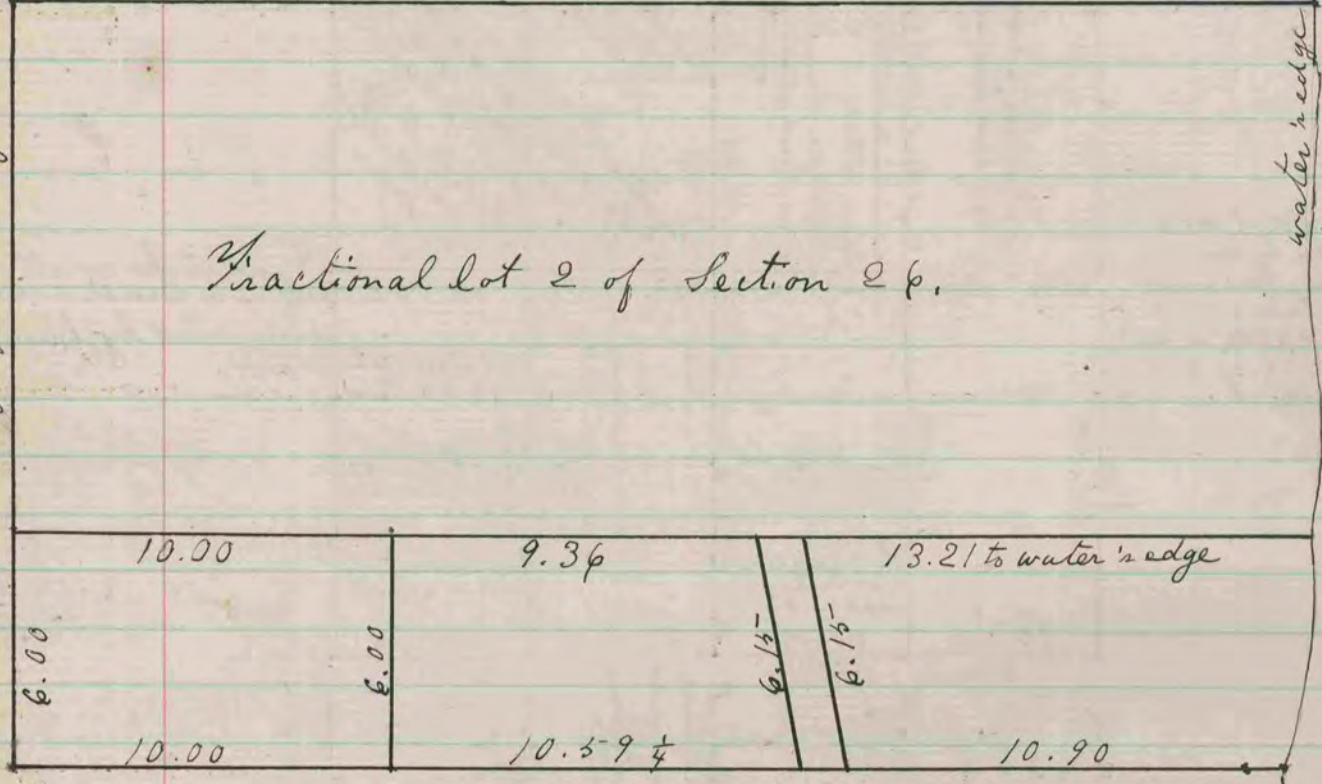 water's edge
Fractional lot 2 of Section 26.
10.00
9.36
13.21 to water's edge
6.00
6.00
6.15
6.15
10.00
10.59 1/4
10.90